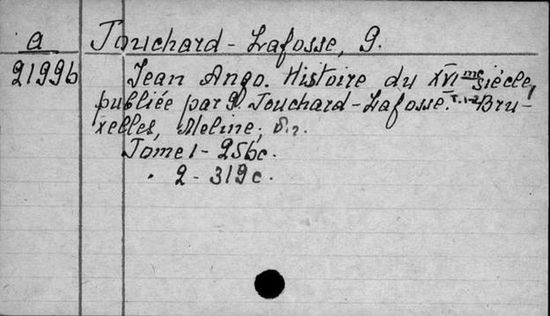 a Touchard-Lafosse, G.
21996 Jean Ango. Histoire du XVI me siècle,
publiée par G. Touchard-Lafosse. T.1-2. Bru-
xelles, Meline,
Tome 1 - 256 c.
" 2 - 319 c.